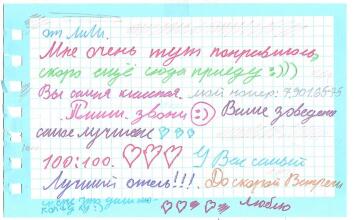 от Лили.
Мне очень тут понравилось,
скоро ещё сюда приеду :)))
Вы самая классная. мой номер:
Пиши. звони ☺ Ваше заведение
самое лучшее ♡♡♡
100:100. ♡♡♡ У Вас самый
Лучший отель!!! До скорой Встречи
♡♡♡♡ Люблю